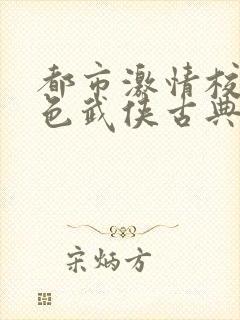 都市激情校
色武侠古典
宋炳方